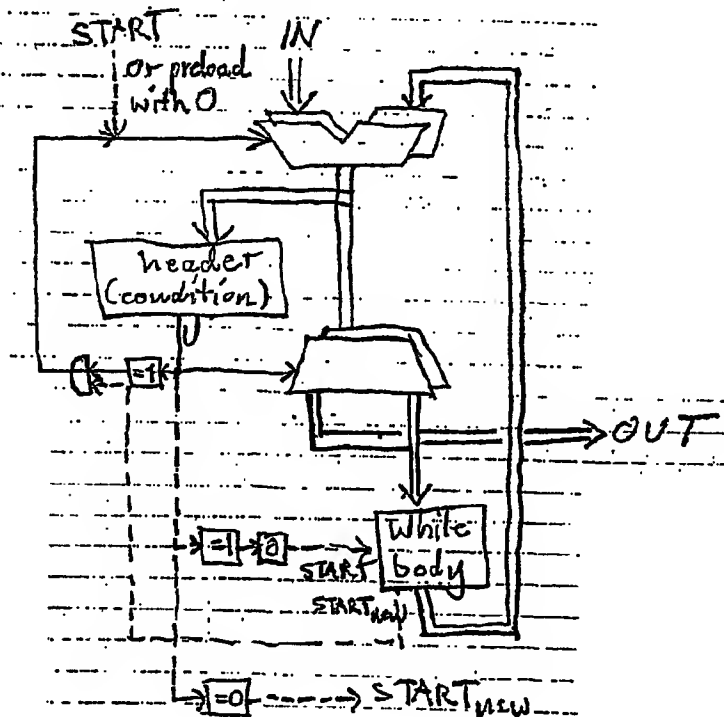 START
or preload
with 0
IN
header
(condition)
=1
OUT
=1
a
START
While
body
START new
=0
START new